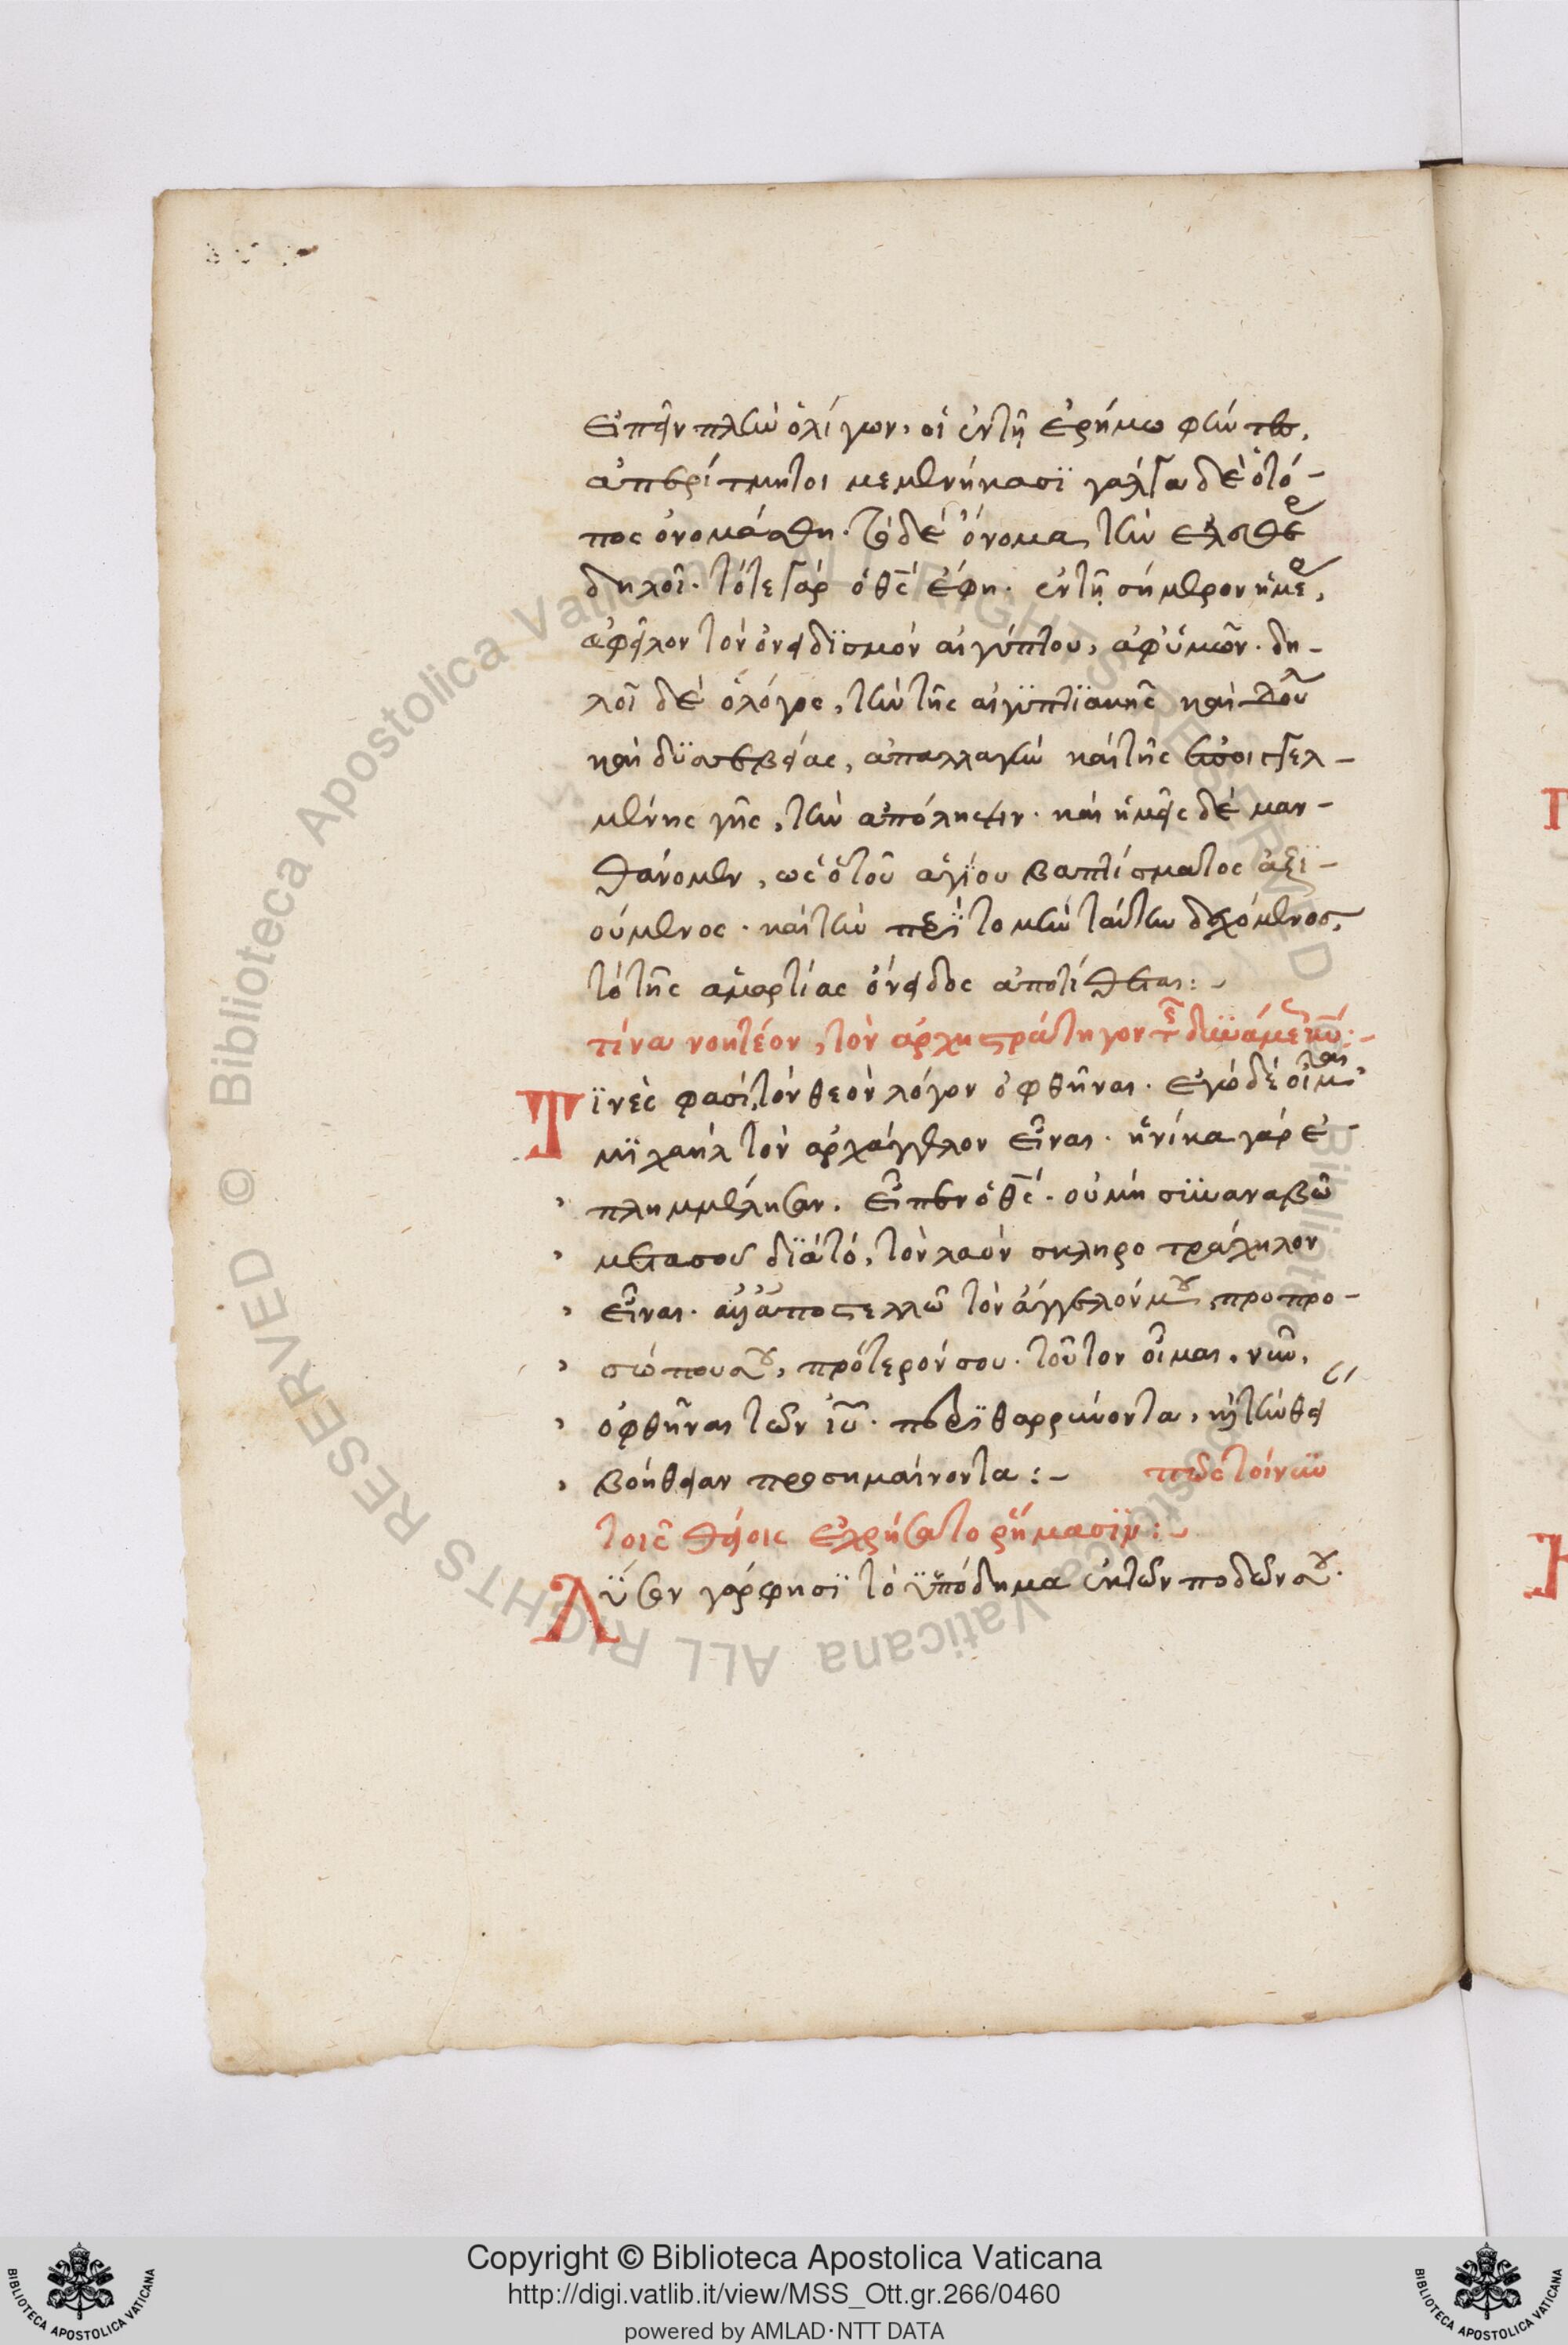 εἰπεῖν πλὴν ὀλίγων, οἱ ἐν τῆ ἐρήμω φύντες,
ἀπερίτμητοι μεμενήκασϊ γάλγαλα δὲ ὁ τό-
πος ὀνομάσθη. τὸ δὲ ὄνομα, τὴν ἐλευθε
δηλοῖ. τότε γὰρ ὁ θς ἔφη. ἐν τῆ σήμερον ἡμέρ,
ἀφεῖλον τὸν ὀνειδϊσμὸν αἰγύπτου, ἀφ' ὑμῶν. δη-
λοῖ δὲ ὁ λόγος, τὴν τῆς αἰγϋπτϊακῆς καὶ δουλ
καὶ δϋσσεβείας, ἀπαλλαγὴν καὶ τῆς
μένης γῆς, τὴν ἀπόληψιν. καὶ ἡμεῖς δὲ μαν-
θάνομεν, ὡς ὁ τοῦ ἁγίου βαπτίσματος ἀξϊ-
ούμενος. καὶ τὴν περϊτομὴν ταύτην δεχόμενος,
τὸ τῆς ἁμαρτίας ὄνειδος ἀποτίθεται:-
τίνα νοητέον, τὸν ἀρχηστράτηγον τῆς δυνάμεως κυ:-
Τϊνὲς φασὶ, τὸν θεὸν λόγον ὀφθῆναι. ἐγὼ δὲ οἶμαι
μϊχαὴλ τὸν ἀρχάγγελον εἶναι. ἡνίκα γὰρ ἐ-
πλημμέλησαν. εἶπεν ὁ θς. οὐ μὴ συναναβῶ
μετὰ σοῦ διὰ τὸ, τὸν λαὸν σκληροτράχηλον
εἶναι. ἀλλ' ἀποστελλῶ τὸν ἄγγελόν μου προ προ-
σώπου σου, πρότερόν σου. τοῦτον οἶμαι, νῦν,
ὀφθῆναι τῶν ιυ. περϊθαρρύνοντα, καὶ τὴν θεί
βοήθειαν προσημαίνοντα:- πῶς τοίνυν
τοῖς θείοις ἐχρήσατο ῥήμασϊν:-
Λῦσον γάρ φησϊ τὸ ὑπόδημα ἐκ τῶν ποδῶν σου.
Copyright © Biblioteca Apostolica Vaticana
http://digi.vatlib.it/view/MSS_Ott.gr.266/0460
powered by AMLAD·NTT DATA